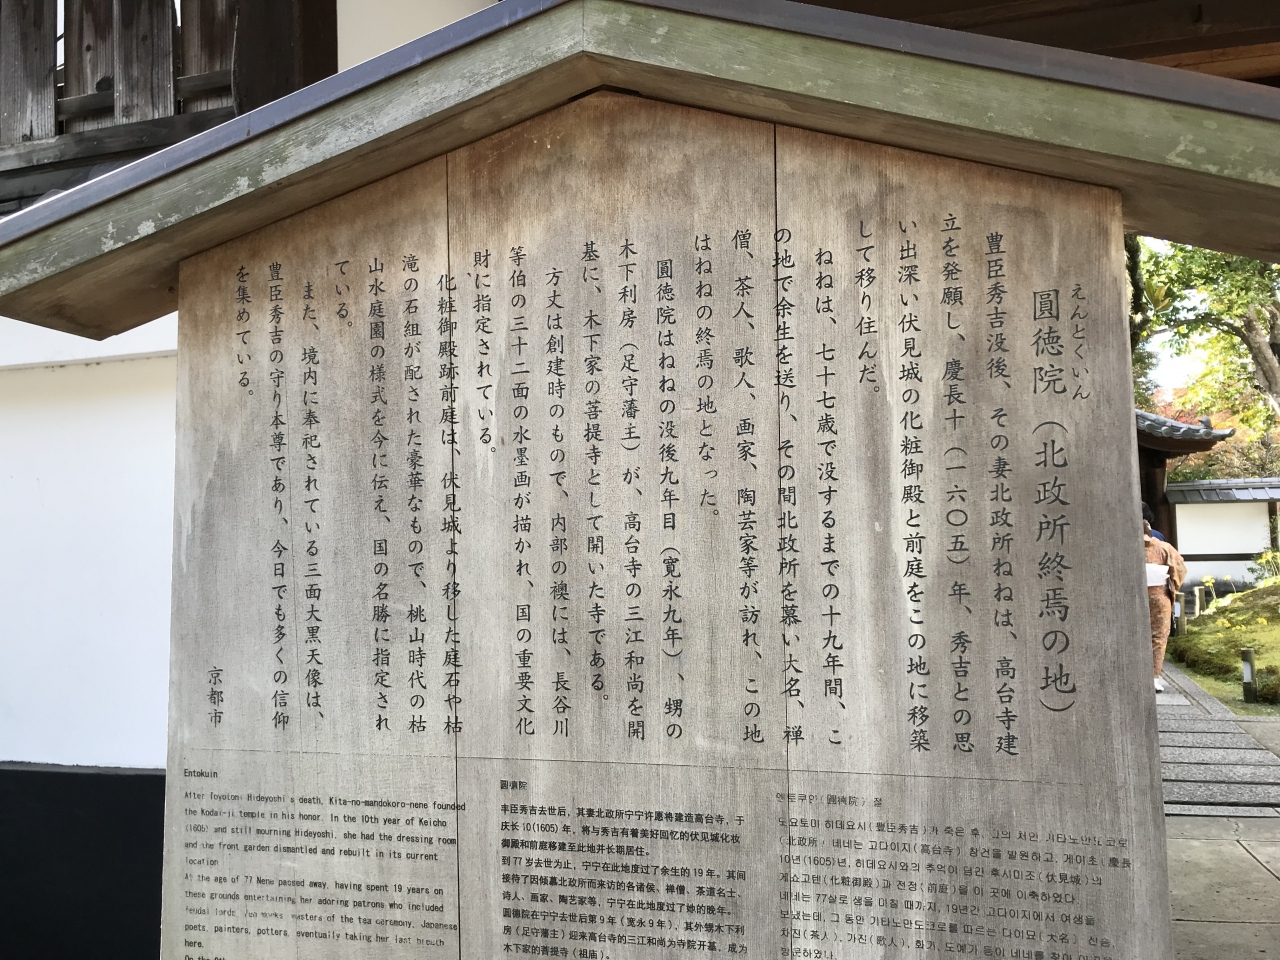 えんとくいん
圓徳院（北政所終焉の地）
豊臣秀吉没後、その妻北政所ねねは、高台寺建
立を発願し、慶長十（一六〇五）年、秀吉との思
い出深い伏見城の化粧御殿と前庭をこの地に移築
して移り住んだ。
ねねは、七十七歳で没するまでの十九年間、こ
の地で余生を送り、その間北政所を慕い大名、禅
僧、茶人、歌人、画家、陶芸家等が訪れ、この地
はねねの終焉の地となった。
圓徳院はねねの没後九年目（寛永九年）、甥の
木下利房（足守藩主）が、高台寺の三江和尚を開
基に、木下家の菩提寺として開いた寺である。
方丈は創建時のもので、内部の襖には、長谷川
等伯の三十二面の水墨画が描かれ、国の重要文化
財に指定されている。
化粧御殿跡前庭は、伏見城より移した庭石や枯
滝の石組が配された豪華なもので、桃山時代の枯
山水庭園の様式を今に伝え、国の名勝に指定され
ている。
また、境内に奉祀されている三面大黒天像は、
豊臣秀吉の守り本尊であり、今日でも多くの信仰
を集めている。
京都市
Entokuin
After Toyotomi Hideyoshi's death, Kita-no-mandokoro-nene founded
the Kodai-ji temple in his honor. In the 10th year of Keicho
(1605) and still mourning Hideyoshi, she had the dressing room
and the front garden dismantled and rebuilt in its current
location
At the age of 77 Nene passed away, having spent 19 years on
these grounds entertaining her adoring patrons who included
feudal lords, Zen monks, masters of the tea ceremony, Japanese
poets, painters, potters, eventually taking her last breath
here.
On the
圆德院
丰臣秀吉去世后，其妻北政所宁宁许愿将建造高台寺，于
庆长10(1605)年，将与秀吉有着美好回忆的伏见城化妆
御殿和前庭移建至此地并长期居住。
到77岁去世为止，宁宁在此地度过了余生的19年。其间
接待了因倾慕北政所而来访的各诸侯、禅僧、茶道名士、
诗人、画家、陶艺家等，宁宁在此地度过了她的晚年。
圆德院在宁宁去世后第9年（宽永9年），其外甥木下利
房（足守藩主）迎来高台寺的三江和尚为寺院开基，成为
木下家的菩提寺（祖庙）。
엔토쿠인(圓徳院) 절
도요토미 히데요시(豊臣秀吉)가 죽은 후, 그의 처인 기타노만도코로
(北政所) 네네는 고다이지(高台寺) 창건을 발원하고, 게이초(慶長
10년(1605)년, 히데요시와의 추억이 담긴 후시미조(伏見城)의
게쇼고텐(化粧御殿)과 전정(前庭)을 이 곳에 이축하였다.
네네는 77살로 생을 마칠 때까지, 19년간 고다이지에서 여생을
보냈는데, 그 동안 기타노만도코로를 따르는 다이묘(大名) 선승,
차진(茶人), 가진(歌人), 화가, 도예가 등이 네네를 찾아
방문하였다.